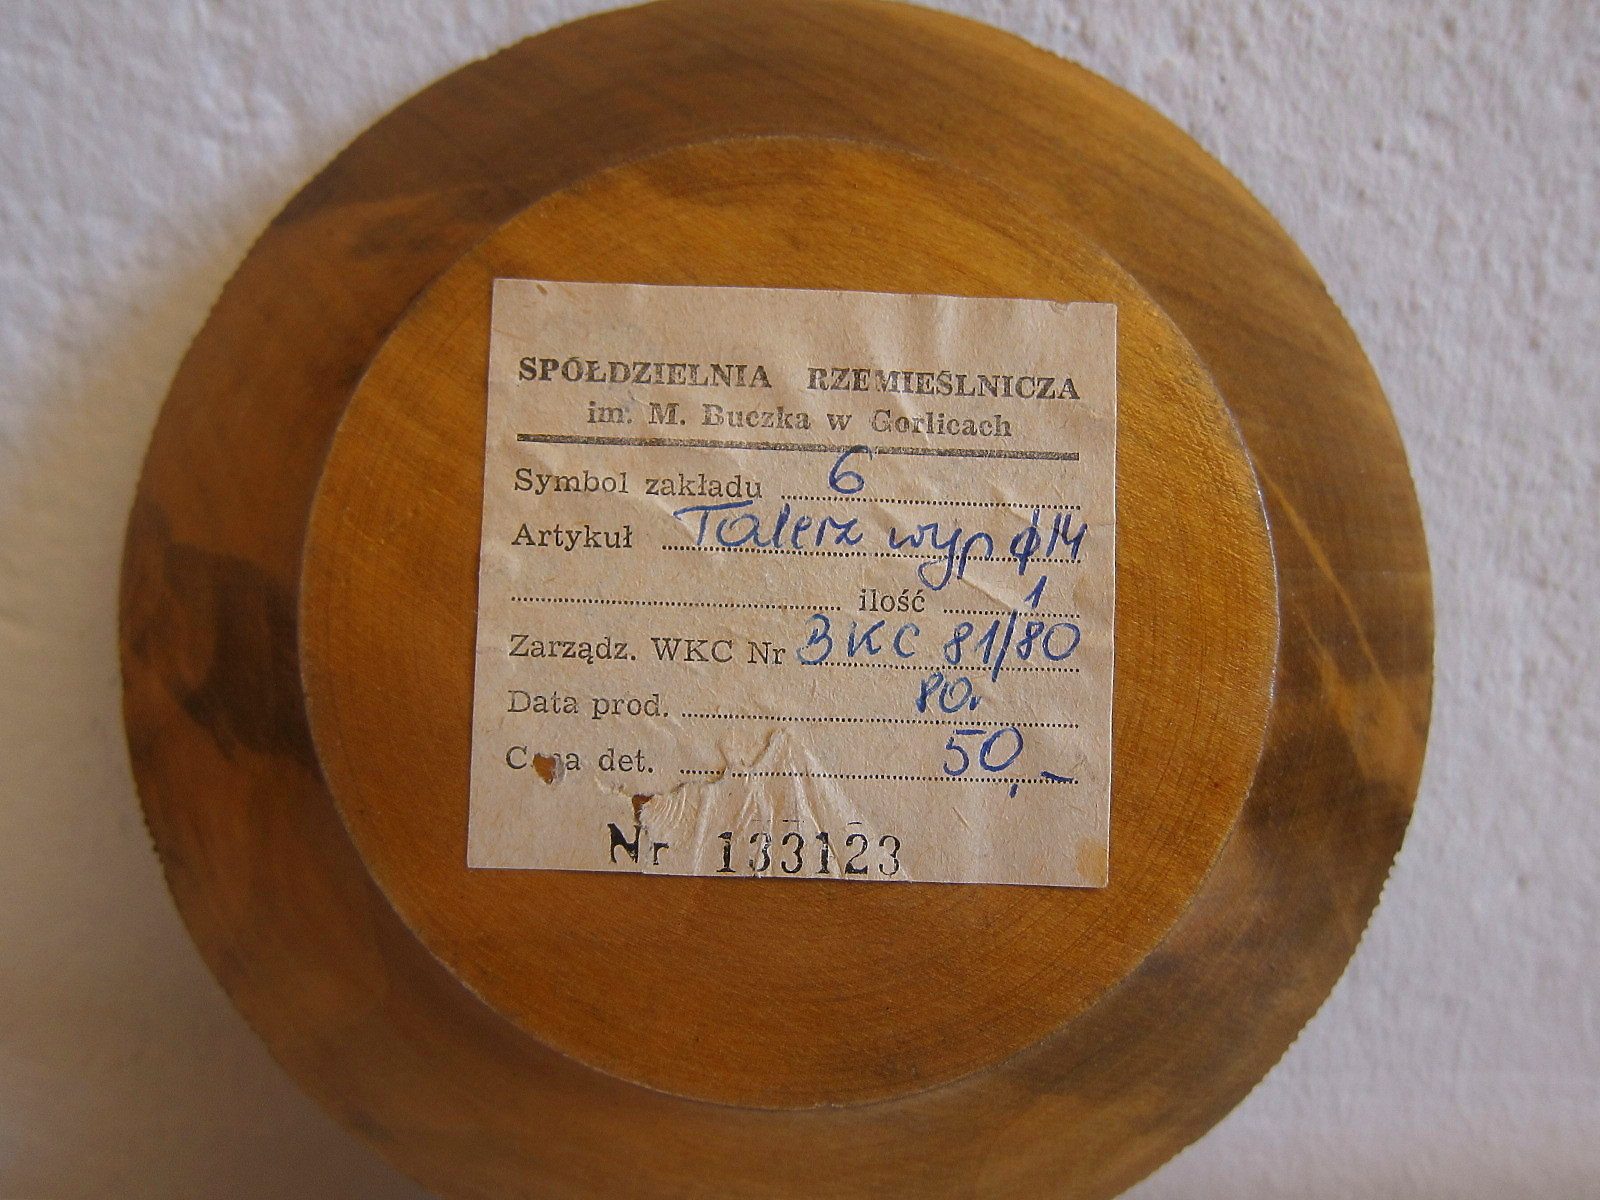 SPÓŁDZIELNIA RZEMIEŚLNICZA
im. M. Buczka w Gorlicach
Symbol zakładu 6
Artykuł Talerz wyp ϕ14
ilość 1
Zarządz. WKC Nr BKC 81/80
Data prod. 80.
Cena det. 50,-
Nr 133123